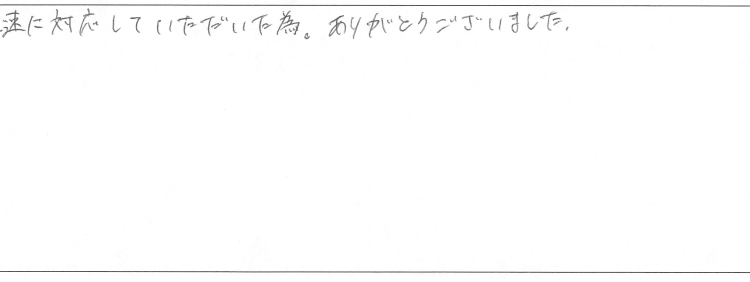 速に対応していただいた為。ありがとうございました。